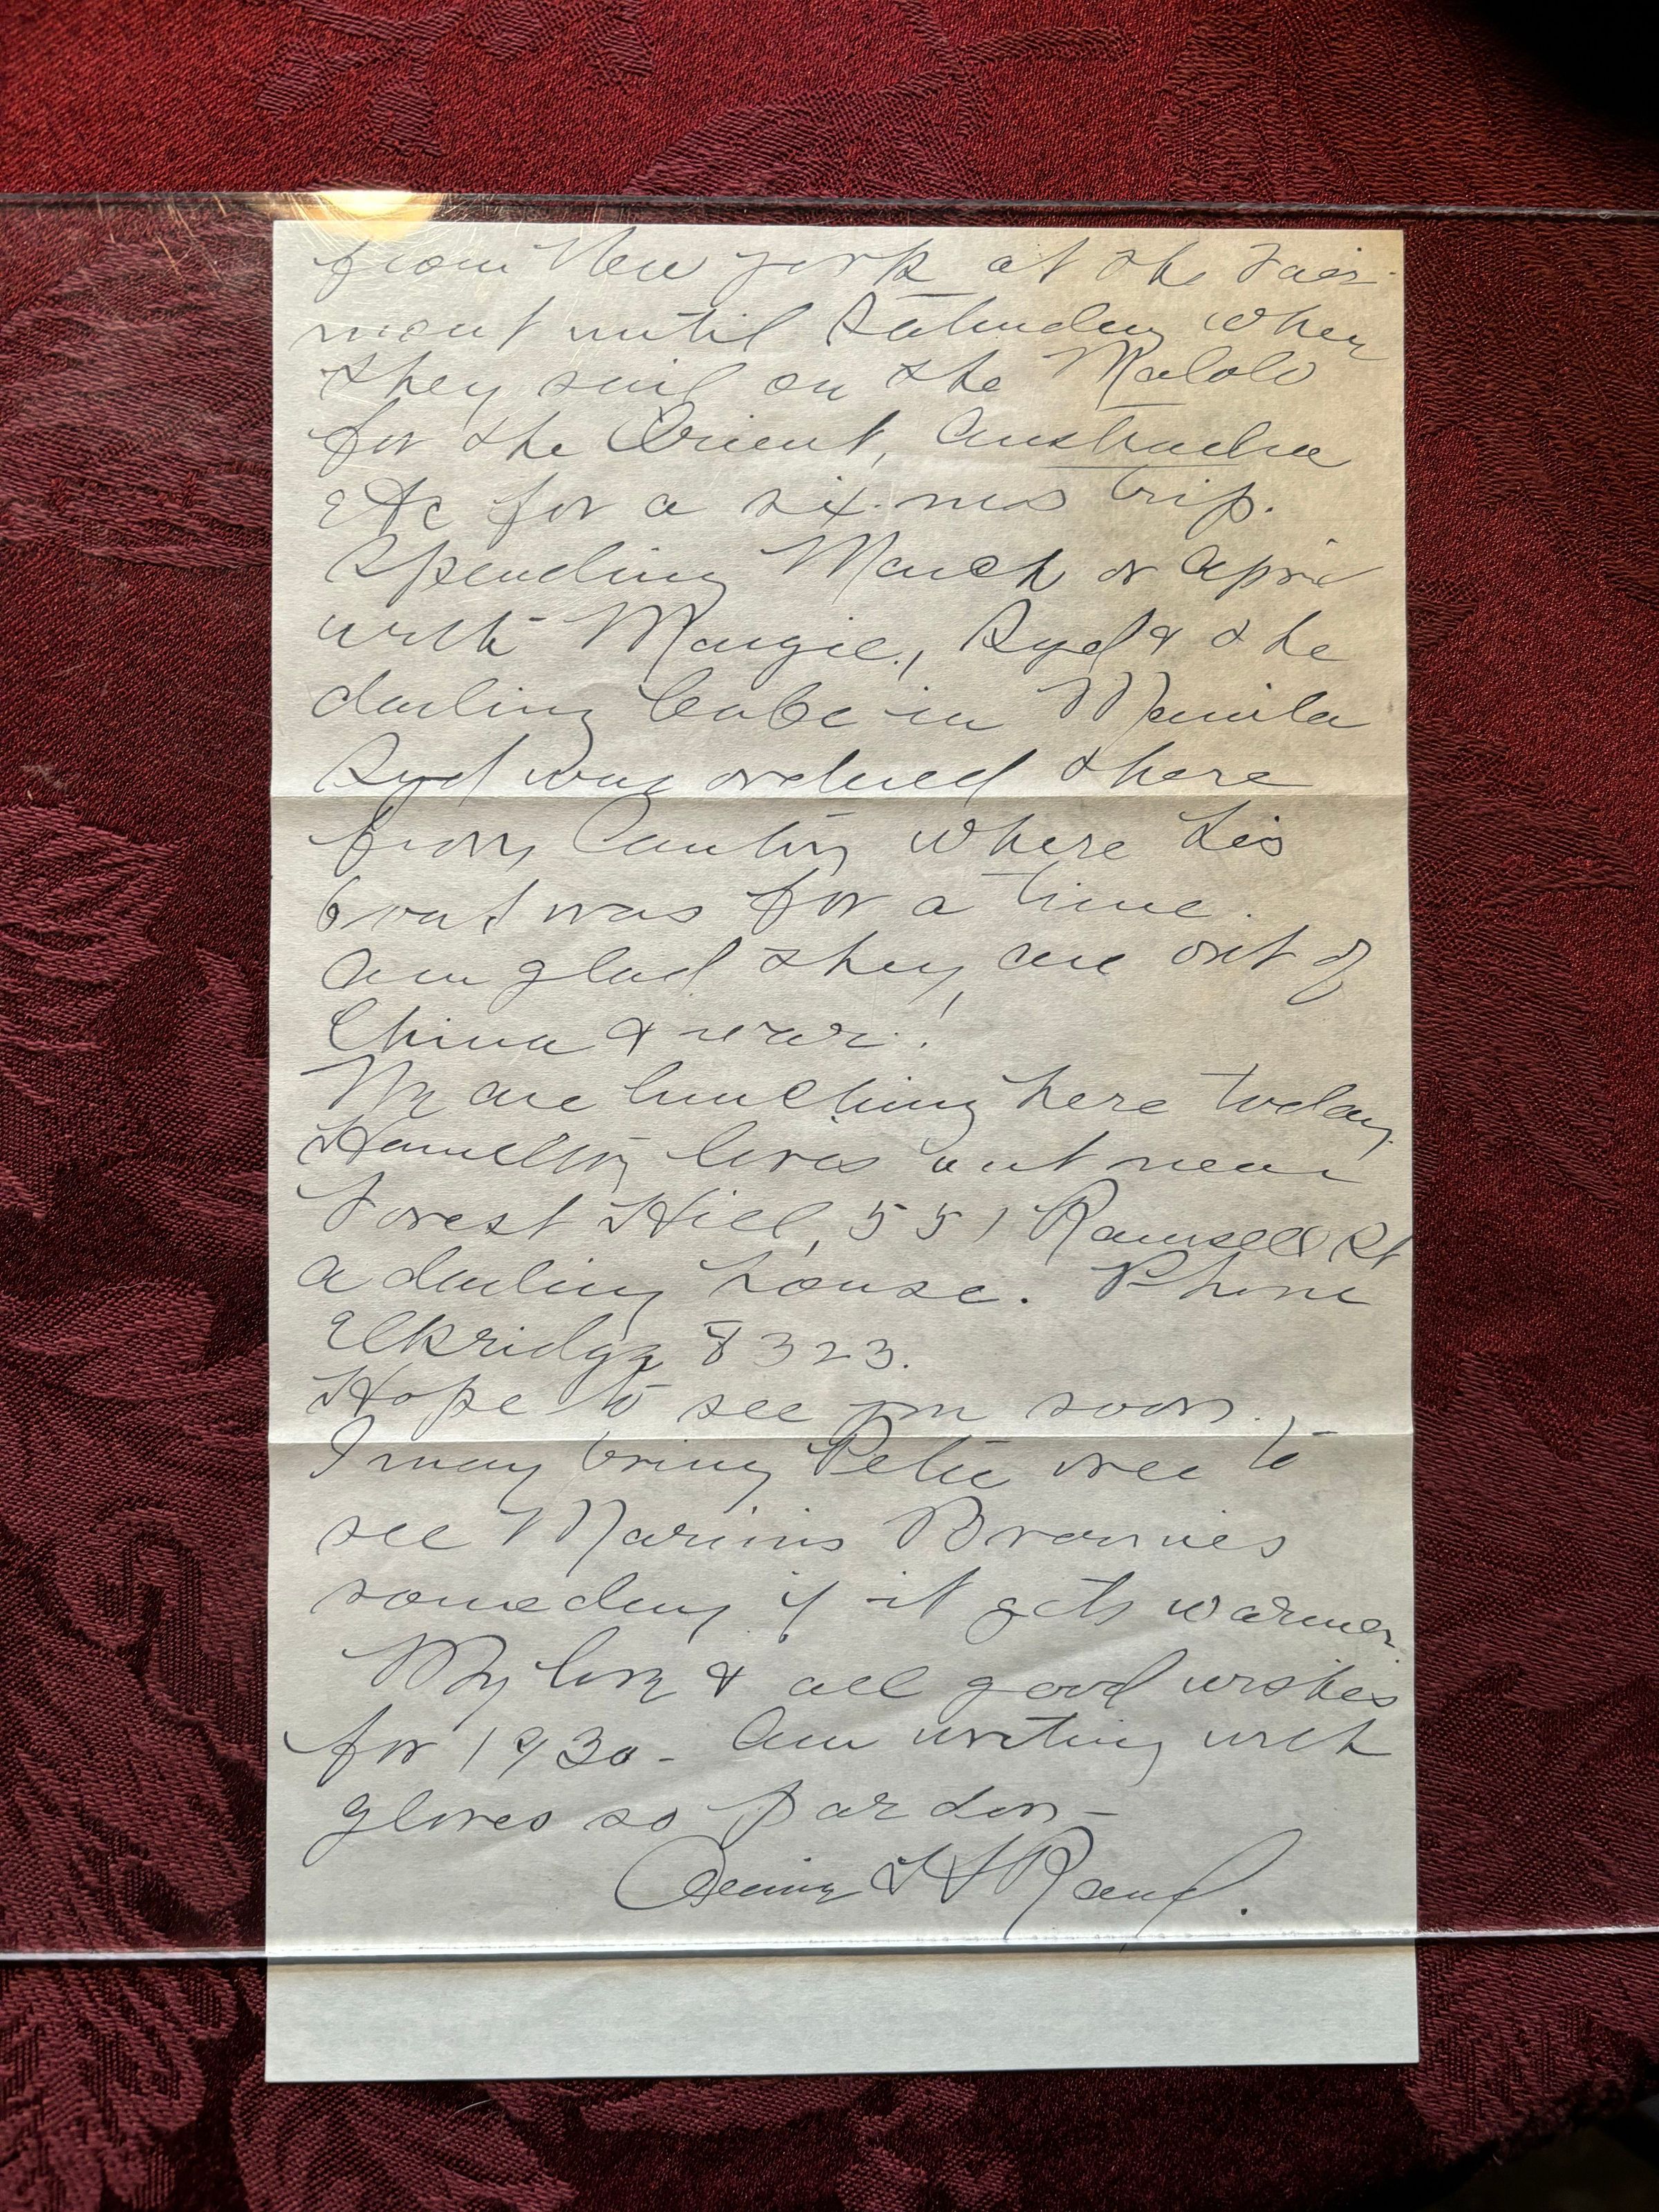 from New York at the Fair-
mont until Saturday when
they sail on the Malolo
for the Orient, Australia
etc for a six mos trip.
Spending March or April
with Margie, Syd & the
darling babe in Manila
Syd was ordered there
from Canton where his
boat was for a time.
Am glad they are out of
China & war!
We are lunching here today.
Hamilton lives out near
Forest Hill, 551 Ramsell St
a darling house. Phone
Elkridge 8323.
Hope to see you soon.
I may bring Peter over to
see Brownies
someday if it gets warmer
My love & all good wishes
for 1930 - Am writing with
gloves so pardon -
H